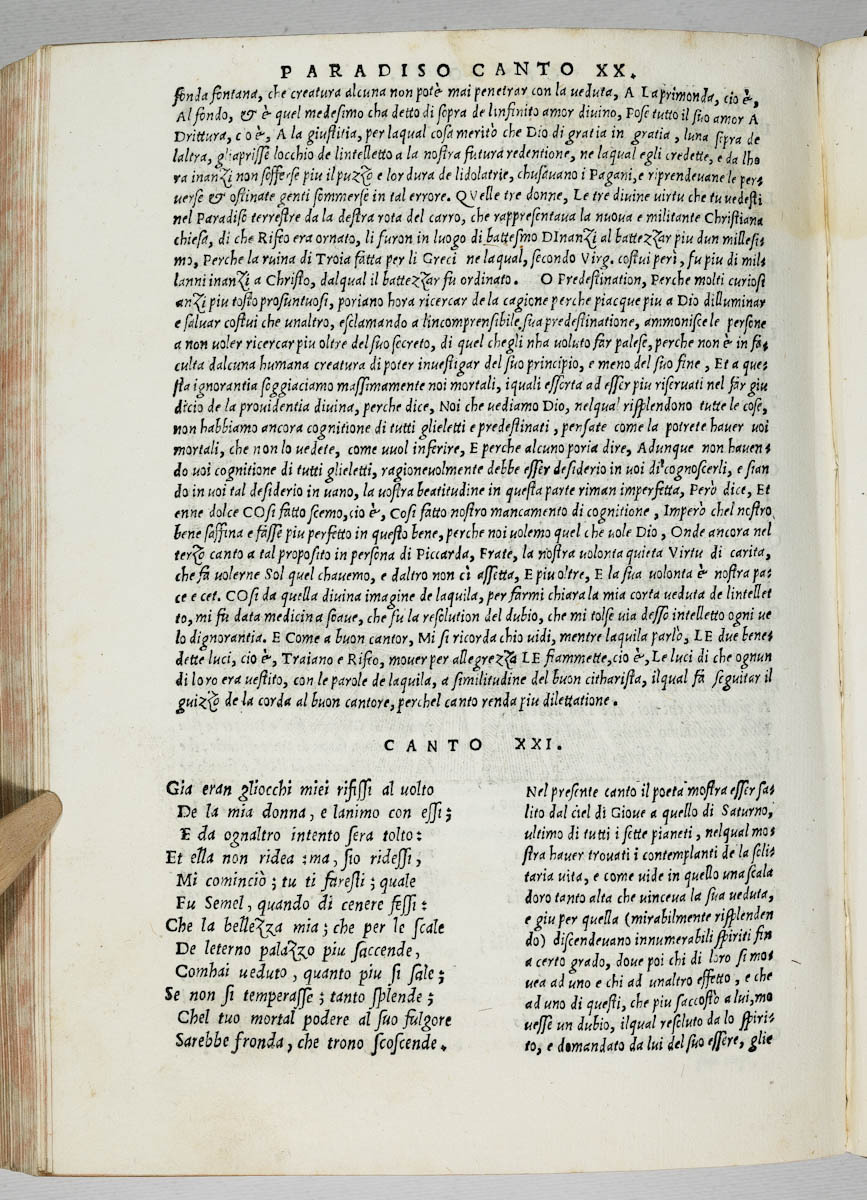 PARADISO CANTO XX.
fonda fontana, che creatura alcuna non potè mai penetrar con la veduta, A Laprimonda, cio è,
Al fondo, & è quel medesimo cha detto di sopra de linfinito amor divino, Pose tutto il suo amor A
Drittura, cio è, A la giustitia, per laqual cosa meritò che Dio di gratia in gratia, luna sopra de
laltra, gliaprisse locchio de lintelletto a la nostra futura redentione, ne laqual egli credette, e da lho
ra inanzi non sofferse piu il puzzo e lordura de lidolatrie, chusavano i Pagani, e riprendevane le per-
verse & ostinate genti sommerse in tal errore. QVelle tre donne, Le tre divine virtu che tu vedesti
nel Paradiso terrestre da la destra rota del carro, che rappresentava la nuova e militante Christiana
chiesa, di che Rifeo era ornato, li furon in luogo di battesmo DInanzi al battezzar piu dun millesi-
mo, Perche la ruina di Troia fatta per li Greci ne laqual, secondo Virg. costui perì, fu piu di mil-
lanni inanzi a Christo, dalqual il battezzar fu ordinato. O Predestination, Perche molti curiosi
anzi piu tosto prosuntuosi, poriano hora ricercar de la cagione perche piacque piu a Dio dilluminar
e salvar costui che unaltro, esclamando a lincomprensibile sua predestinatione, ammonisce le persone
a non voler ricercar piu oltre del suo secreto, di quel chegli nha voluto far palese, perche non è in fa-
culta dalcuna humana creatura di poter investigar del suo principio, e meno del suo fine, Et a que-
sta ignorantia soggiaciamo massimamente noi mortali, iquali essorta ad esser piu riservati nel far giu
dicio de la providentia divina, perche dice, Noi che vediamo Dio, nelqual risplendono tutte le cose,
non habbiamo ancora cognitione di tutti glieletti e predestinati, pensate come la potrete haver voi
mortali, che non lo vedete, come vuol inferire, E perche alcuno poria dire, Adunque non haven-
do voi cognitione di tutti glieletti, ragionevolmente debbe esser desiderio in voi di cognoscerli, e sian
do in voi tal desiderio in vano, la vostra beatitudine in questa parte riman imperfetta, Però dice, Et
enne dolce COsi fatto scemo, cio è, Cosi fatto nostro mancamento di cognitione, Imperò chel nostro
bene saffina e fasse piu perfetto in questo bene, perche noi volemo quel che vole Dio, Onde ancora nel
terzo canto a tal proposito in persona di Piccarda, Frate, la nostra volonta quieta Virtu di carita,
che fa volerne Sol quel chavemo, e daltro non ci assetta, E piu oltre, E la sua volonta è nostra pa-
ce e cet. COsi da quella divina imagine de laquila, per farmi chiara la mia corta veduta de lintellet
to, mi fu data medicina soave, che fu la resolution del dubio, che mi tolse via desso intelletto ogni ve
lo dignorantia. E Come a buon cantor, Mi si ricorda chio vidi, mentre laquila parlò, LE due bene-
dette luci, cio è, Traiano e Rifeo, mover per allegrezza LE fiammette, cio è, Le luci di che ognun
di loro era vestito, con le parole de laquila, a similitudine del buon citharista, ilqual fa seguitar il
guizzo de la corda al buon cantore, perchel canto renda piu dilettatione.
CANTO XXI.
Gia eran gliocchi miei rifissi al volto
De la mia donna, e lanimo con essi;
E da ognaltro intento sera tolto:
Et ella non ridea: ma, sio ridessi,
Mi cominciò; tu ti faresti; quale
Fu Semel, quando di cenere fessi:
Che la bellezza mia; che per le scale
De leterno palazzo piu saccende,
Comhai veduto, quanto piu si sale;
Se non si temperasse; tanto splende;
Chel tuo mortal podere al suo fulgore
Sarebbe fronda, che trono scoscende.
Nel presente canto il poeta mostra esser sa-
lito dal ciel di Giove a quello di Saturno,
ultimo di tutti i sette pianeti, nelqual mo-
stra haver trovati i contemplanti de la soli-
taria vita, e come vide in quello una scala
doro tanto alta che vinceva la sua veduta,
e giu per quella (mirabilmente risplenden
do) discendevano innumerabili spiriti fin
a certo grado, dove poi chi di loro si mo-
vea ad uno e chi ad unaltro effetto, e che
ad uno di questi, che piu saccostò a lui, mo
vesse un dubio, ilqual resoluto da lo spiri-
to, e domandato da lui del suo essere, glie